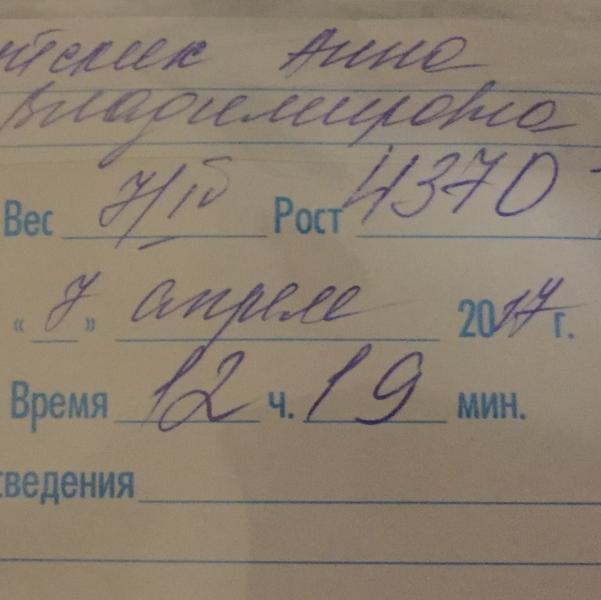 Анна
Владимировна
Вес 7/10 Рост 4370
« 7 » апреля 2017 г.
Время 12 ч. 19 мин.
сведения